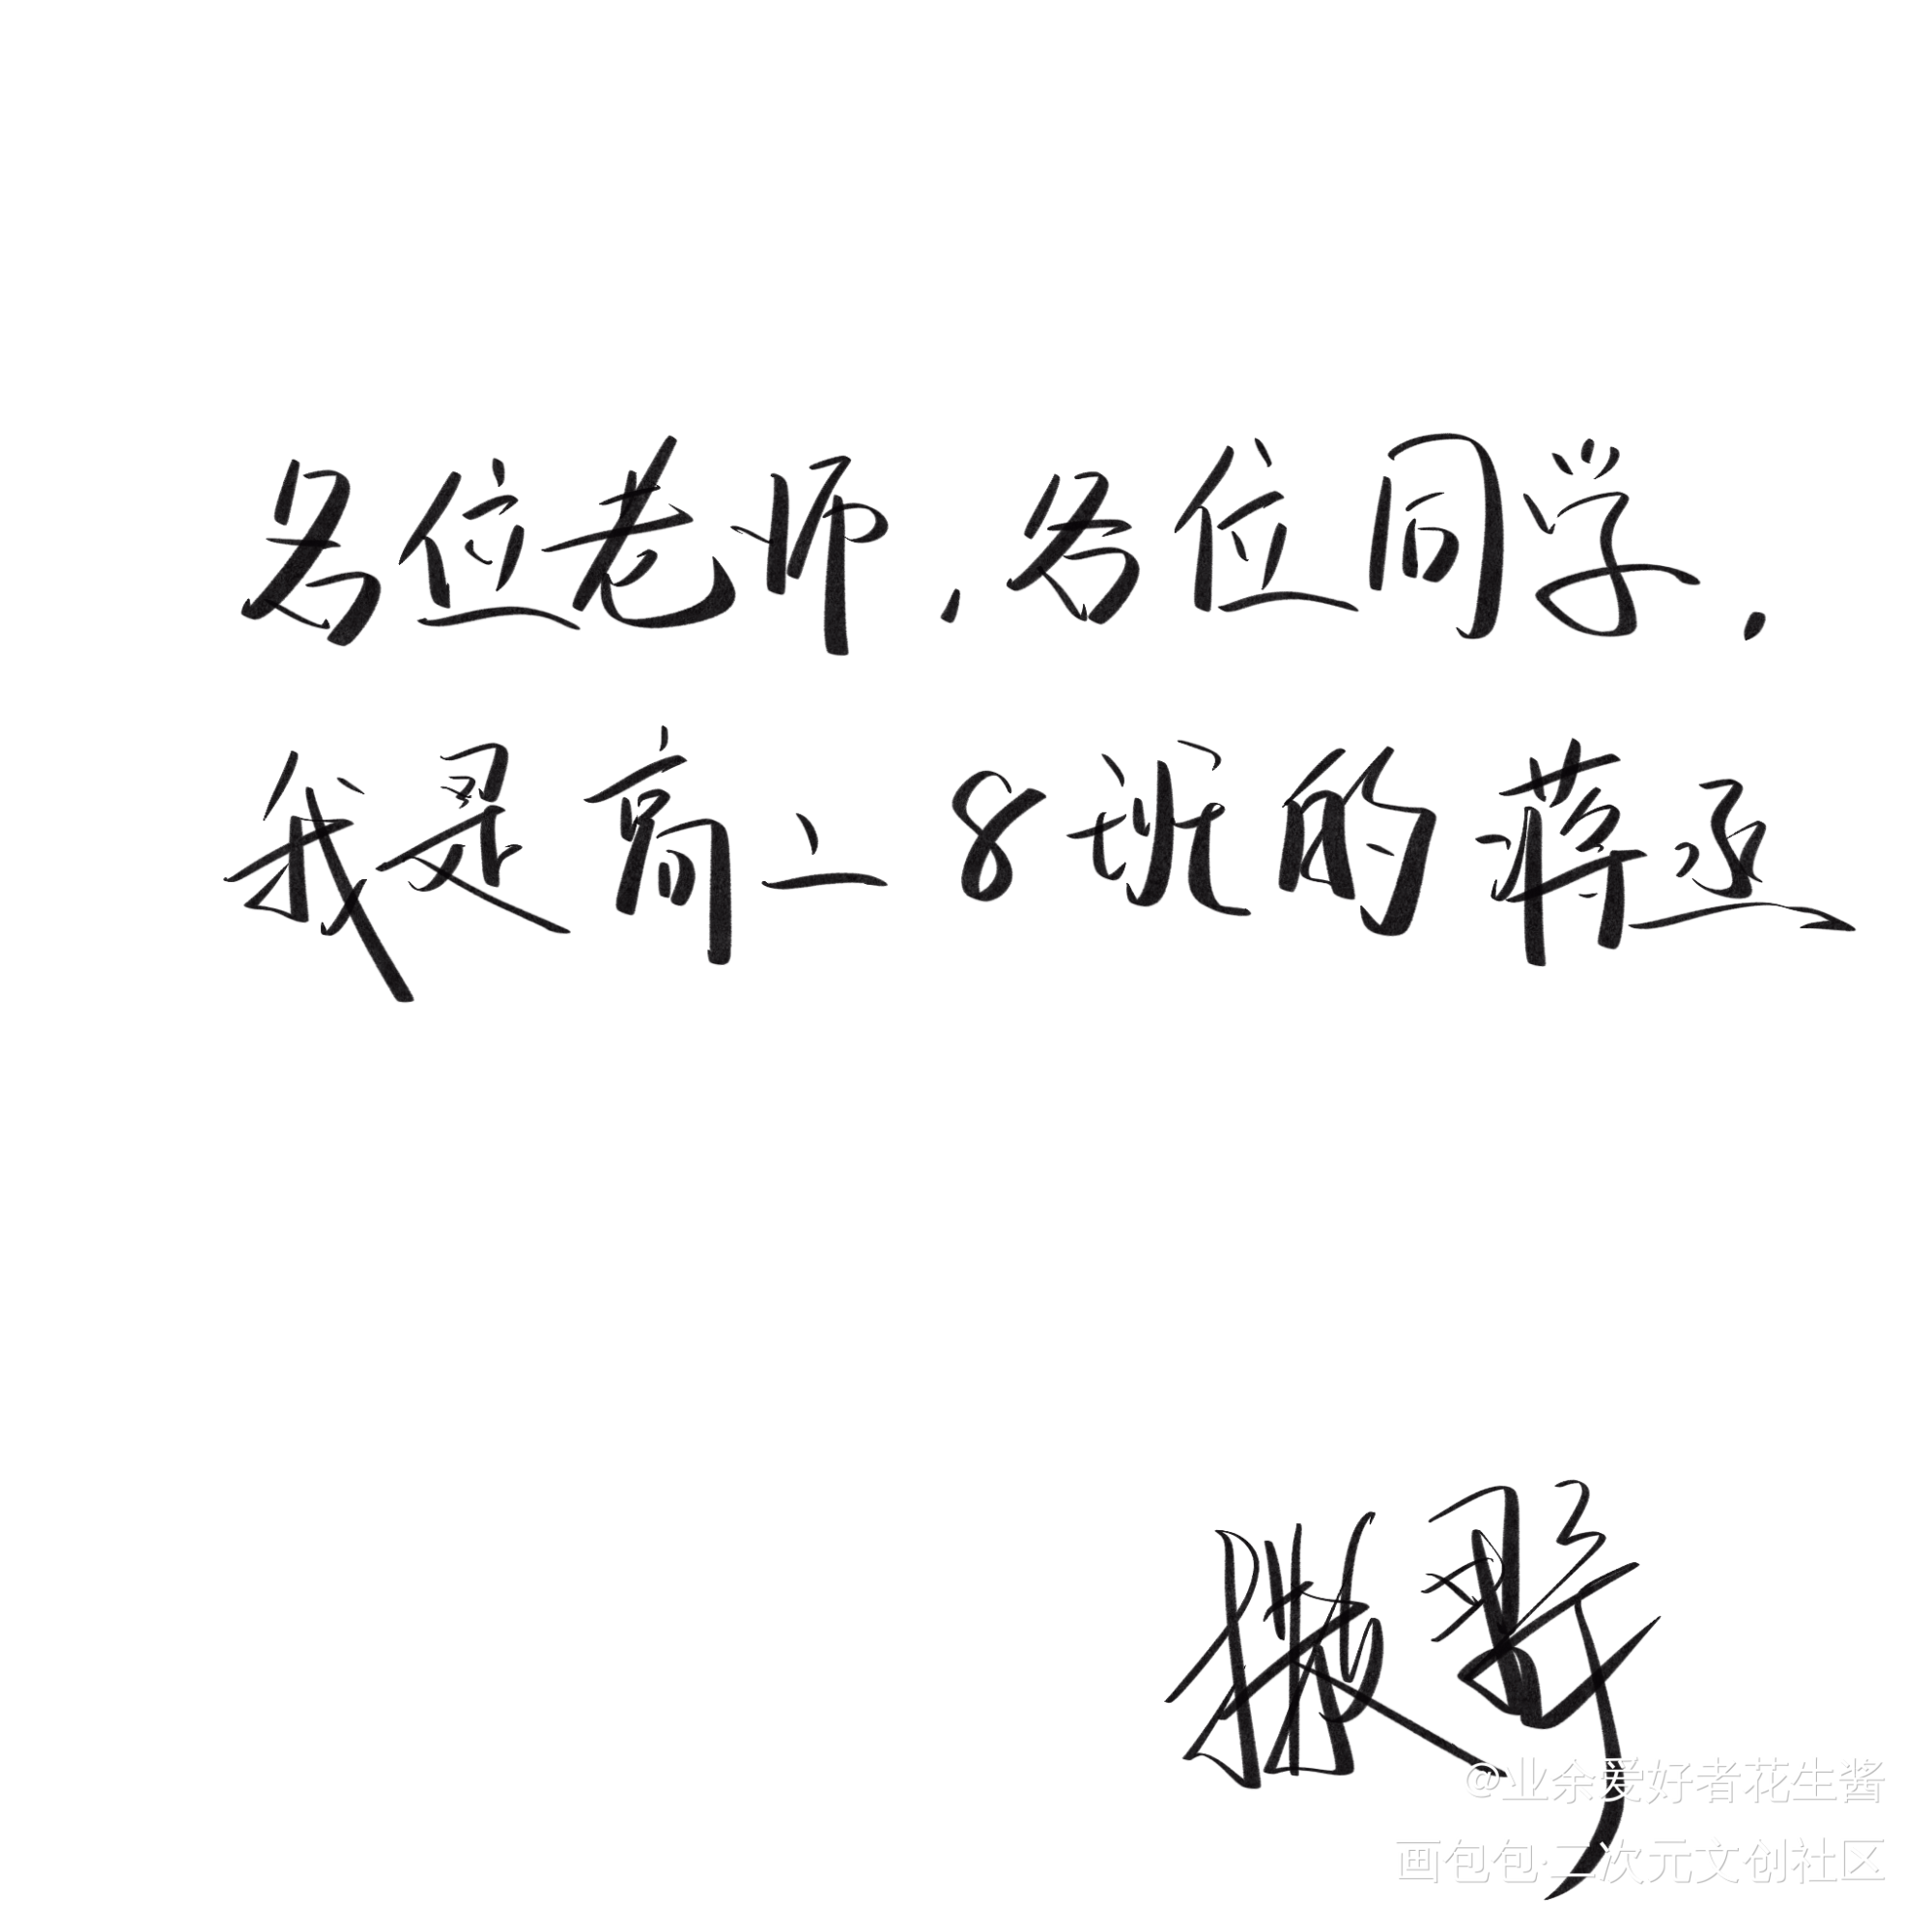 各位老师，各位同学，
我是高二8班的蒋丞
撒野
@业余爱好者花生酱
画包包·二次元文创社区